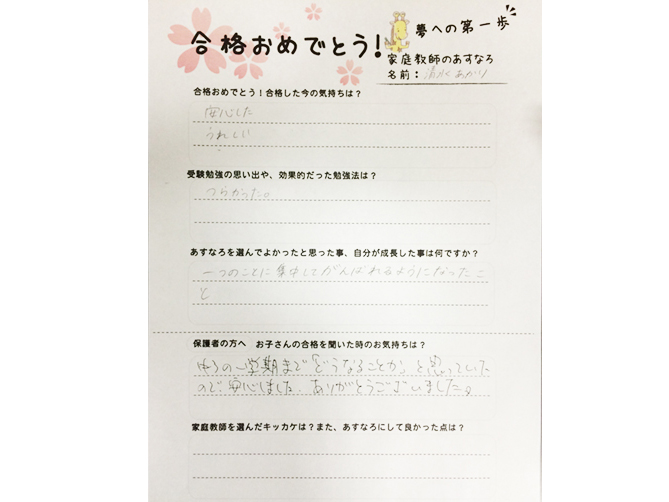 合格おめでとう!
夢への第一歩
家庭教師のあすなろ
名前：清水あかり
合格おめでとう！合格した今の気持ちは？
安心した
うれしい
受験勉強の思い出や、効果的だった勉強法は？
つらかった。
あすなろを選んでよかったと思った事、自分が成長した事は何ですか？
一つのことに集中してがんばれるようになったこ
と
保護者の方へ　お子さんの合格を聞いた時のお気持ちは？
中3の一学期まで「どうなることか」と思っていた
ので、安心しました。ありがとうございました。
家庭教師を選んだキッカケは？また、あすなろにして良かった点は？